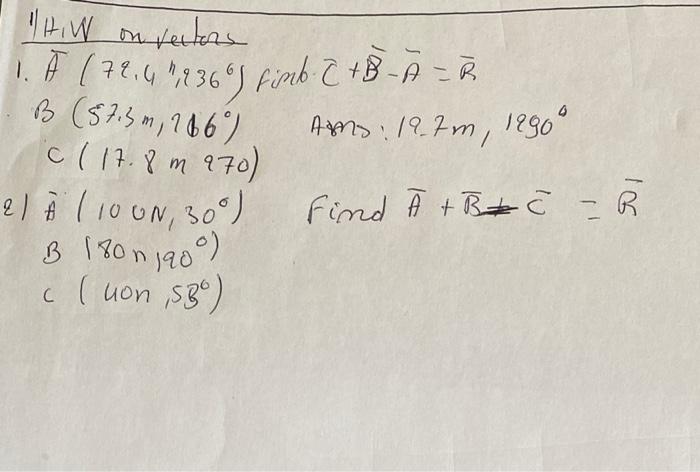 H.W on vectors
1. A̅ (72.4 m, 236°) Find C̅ + B̅ - A̅ = R̅
B (57.3 m, 216°) Ans: 12.7m, 1290°
C (17.8 m 270)
2) A̅ (100N, 30°) Find A̅ + B̅ + C̅ = R̅
B (80n, 90°)
C (40n, 53°)